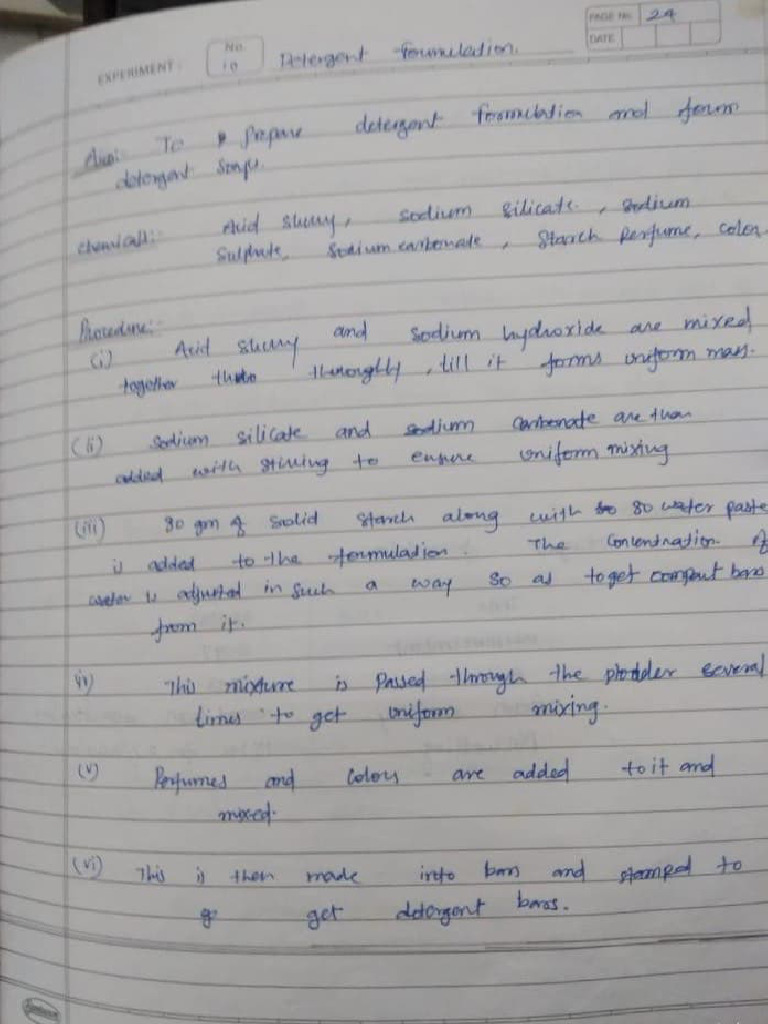 PAGE No. 24
DATE
EXPERIMENT: No. 10 Detergent Formulation.
Aim: To Prepare detergent formulation and form
detergent soaps.
Chemicals: Acid slurry, sodium silicate, sodium
sulphate, sodium carbonate, starch perfume, color.
Procedure:
(i) Acid slurry and sodium hydroxide are mixed
together throughly, till it forms uniform mass.
(ii) sodium silicate and sodium carbonate are than
added with stirring to ensure uniform mixing
(iii) 80 gm of solid starch along with 80 water paste
is added to the formulation. The concentration of
water is adjusted in such a way so as to get compact bars
from it.
iv) This mixture is passed through the plodder several
times to get uniform mixing.
(v) Perfumes and colors are added to it and
mixed.
(vi) This is then made into bars and stamped to
get detergent bars.